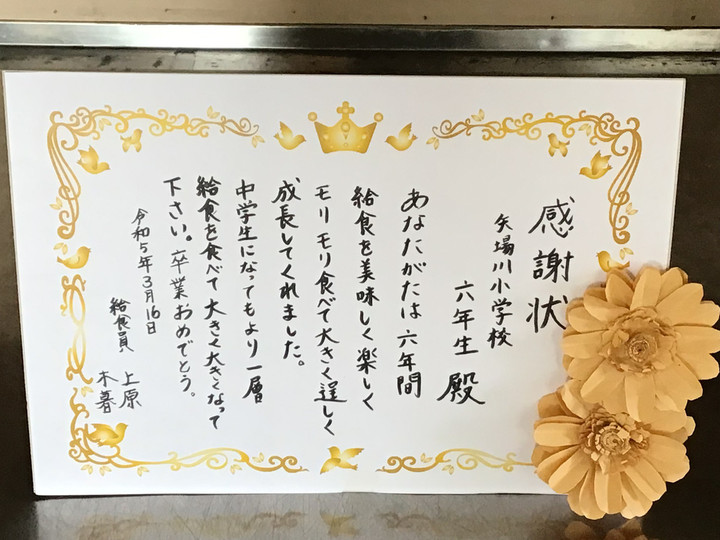 感謝状
矢場川小学校
六年生 殿
あなたがたは 六年間
給食を美味しく楽しく
モリモリ食べて大きく逞しく
成長してくれました。
中学生になってもより一層
給食を食べて 大きく大きくなって
下さい。卒業おめでとう。
令和5年3月16日
給食員 上原
木暮